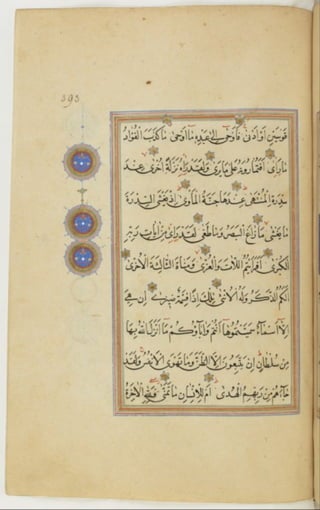 393
قوسين او ادنى فاوحى الى عبده ما اوحى ما كذب الفؤاد
ما راى افتمارونه على ما يرى ولقد راه نزلة اخرى عند
سدرة المنتهى عندها جنة الماوى اذ يغشى السدرة
ما يغشى ما زاغ البصر وما طغى لقد راى من ايات ربه
الكبرى افرايتم اللات والعزى ومناة الثالثة الاخرى
الكم الذكر وله الانثى تلك اذا قسمة ضيزى ان هي
الا اسماء سميتموها انتم واباؤكم ما انزل الله بها
من سلطان ان يتبعون الا الظن وما تهوى الانفس ولقد
جاءهم من ربهم الهدى ام للانسان ما تمنى فلله الاخرة